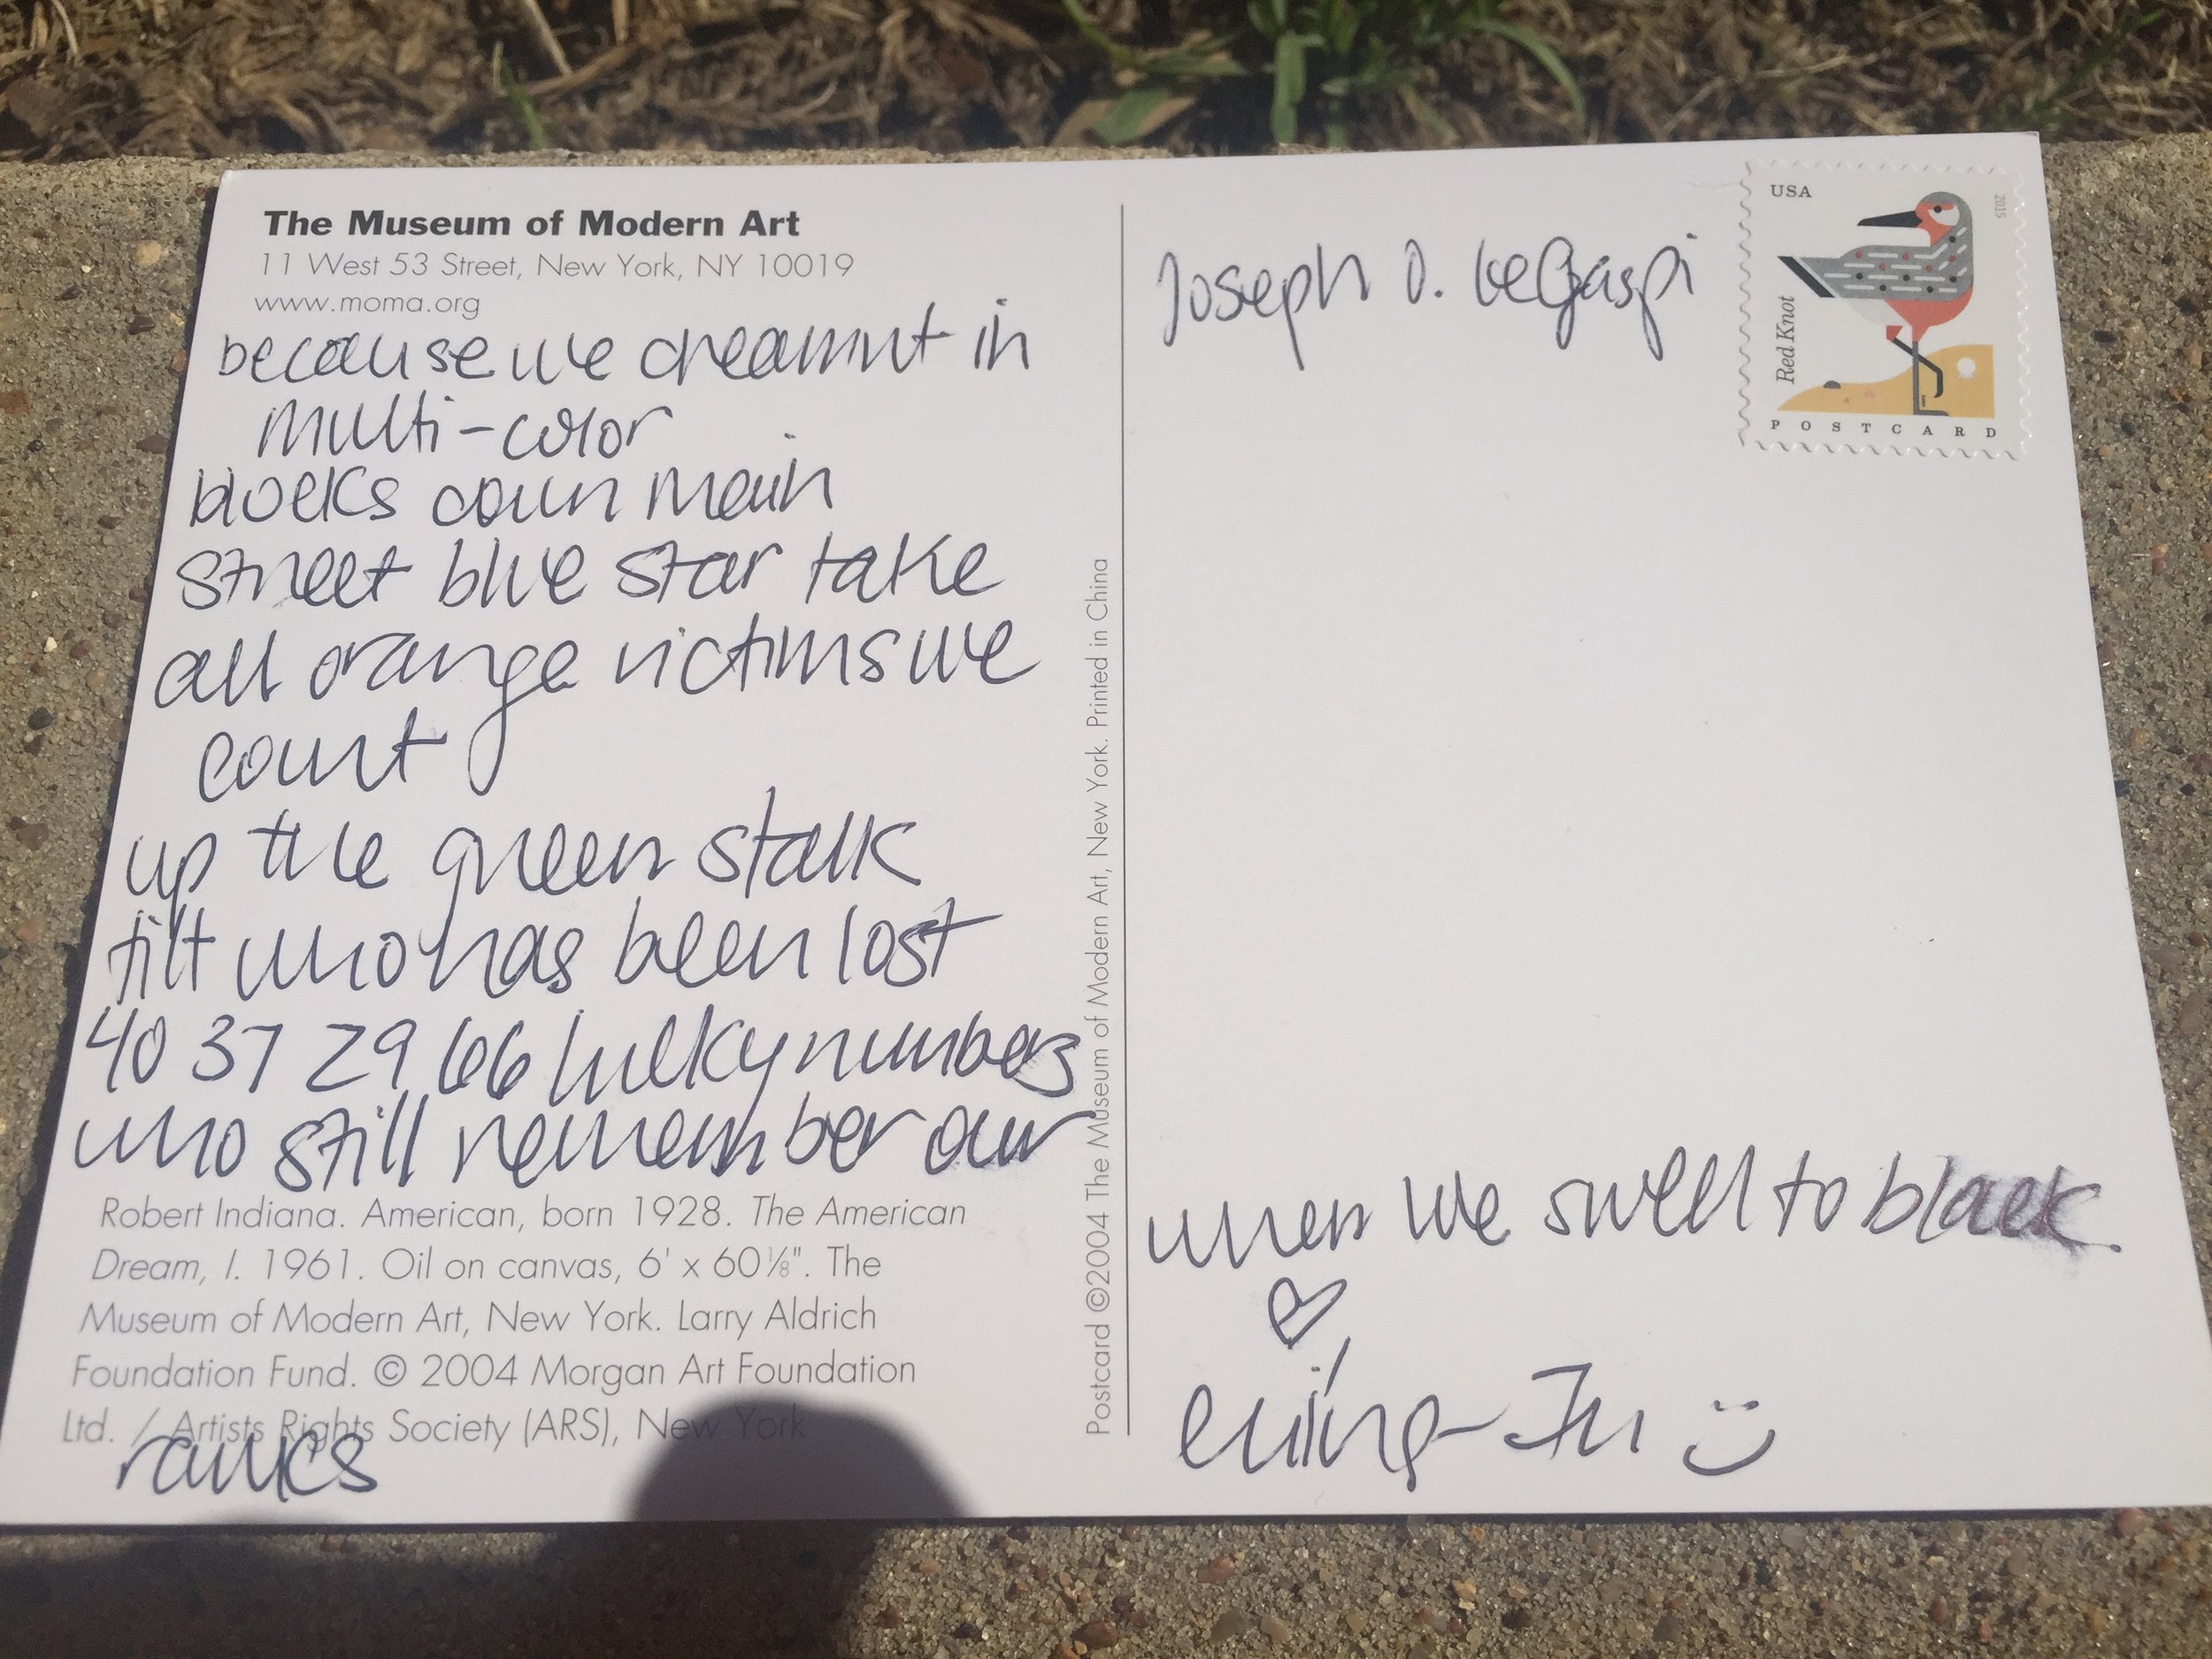 The Museum of Modern Art
11 West 53 Street, New York, NY 10019
www.moma.org
because we dreamnt in
multi-color
blocks down main
street blue star take
all orange victims we
count
up the green stalk
tilt who has been lost
40 37 29 66 lucky numbers
who still remember our
Robert Indiana. American, born 1928. The American
Dream, I. 1961. Oil on canvas, 6' x 60⅛". The
Museum of Modern Art, New York. Larry Aldrich
Foundation Fund. © 2004 Morgan Art Foundation
Ltd. / Artists Rights Society (ARS), New York
ranks
Postcard ©2004 The Museum of Modern Art, New York. Printed in China
Joseph O. LeGaspi
USA
2015
Red Knot
POSTCARD
when we swell to black.
Ching-In